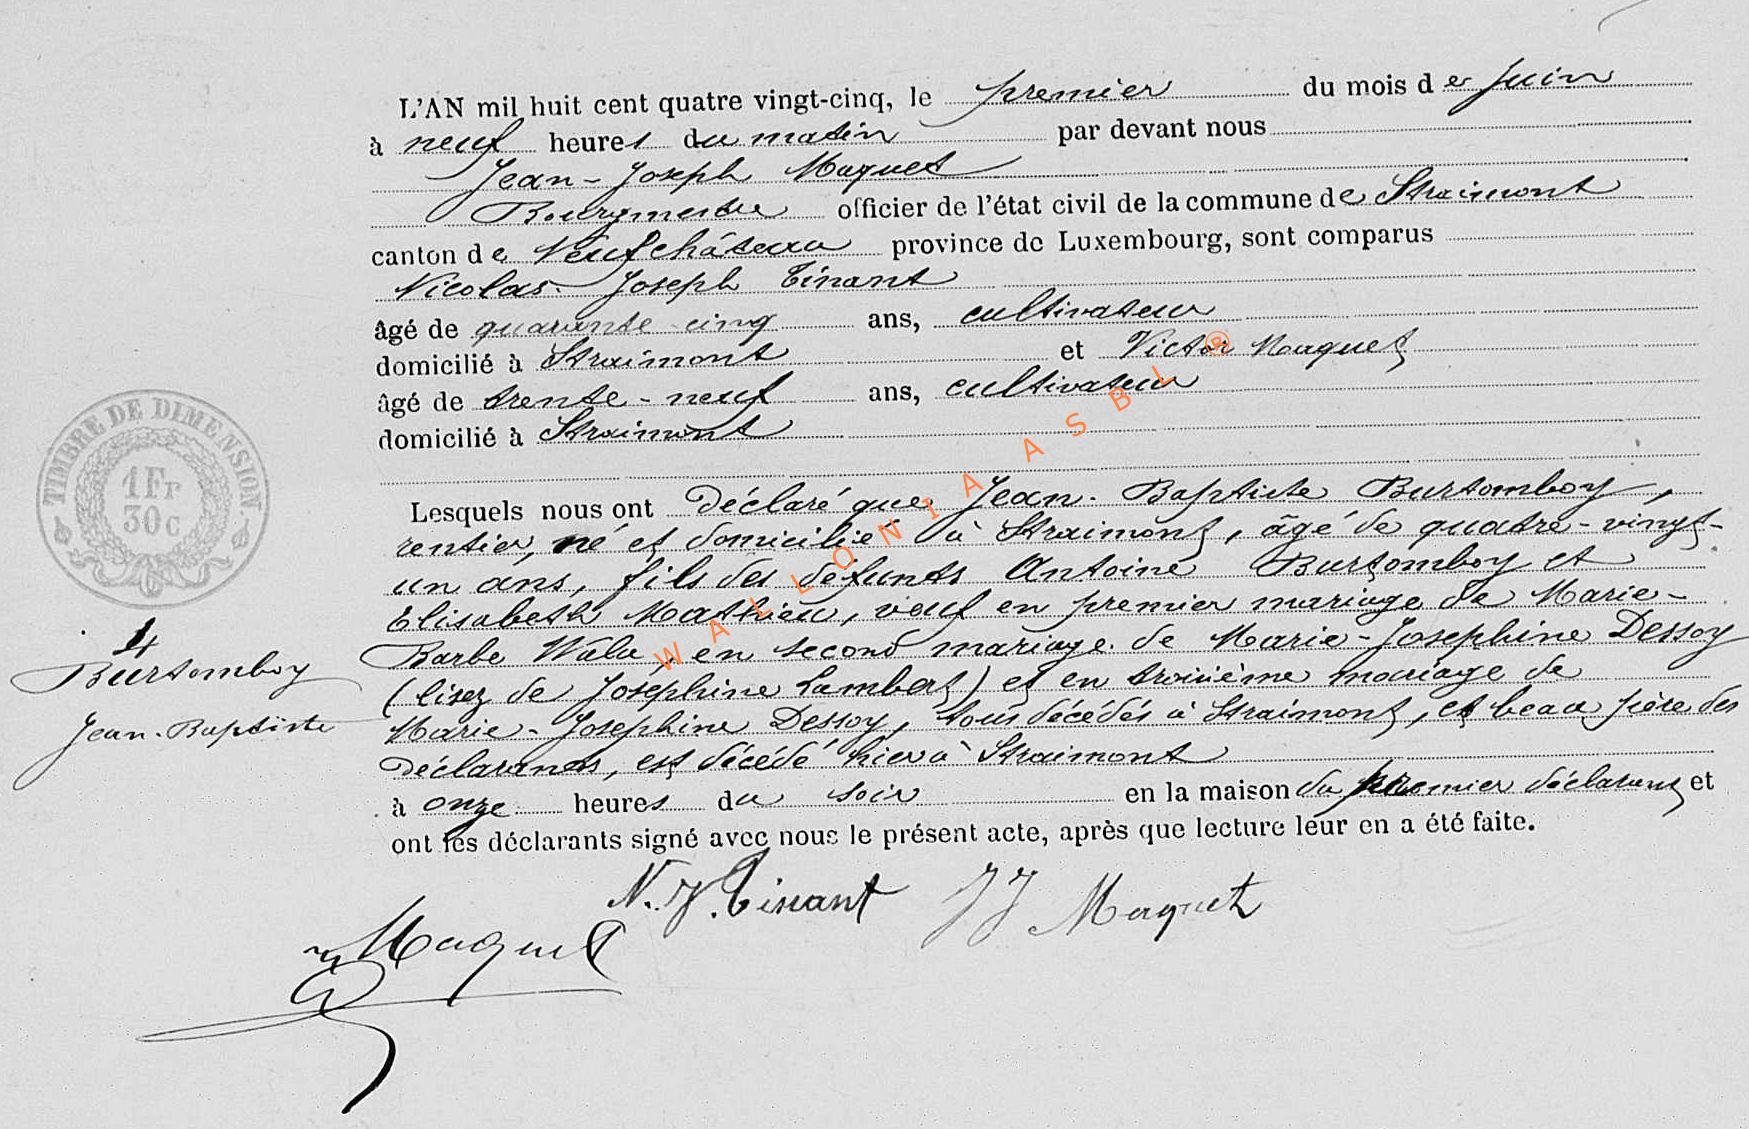 L'AN mil huit cent quatre vingt-cinq, le premier du mois de Juin
à neuf heures du matin par devant nous
Jean-Joseph Maquet
Bourgmestre officier de l'état civil de la commune de Straimont
canton de Neufchâteau province de Luxembourg, sont comparus
Nicolas-Joseph Tinant
âgé de quarante-cinq ans, cultivateur
domicilié à Straimont et Victor Maquet
âgé de trente-neuf ans, cultivateur
domicilié à Straimont
Lesquels nous ont Déclaré que Jean-Baptiste Burtomboy,
rentier, né et domicilié à Straimont, âgé de quatre-vingt-
un ans, fils des défunts Antoine Burtomboy et
Elisabeth Mathieu, veuf en premier mariage de Marie-
Barbe Wala, en second mariage de Marie-Josephine Dessoy
(lisez de Josephine Lambert) et en troisième mariage de
Marie-Josephine Dessoy, tous décédés à Straimont, et beau père des
Déclarants, est décédé hier à Straimont
à onze heures du soir en la maison du premier déclarant et
ont les déclarants signé avec nous le présent acte, après que lecture leur en a été faite.
N. J. Tinant JJ Maquet
Maquet
TIMBRE DE DIMENSION
1 Fr
30 C
4
Burtomboy
Jean-Baptiste
WALLONIA ASBL ®